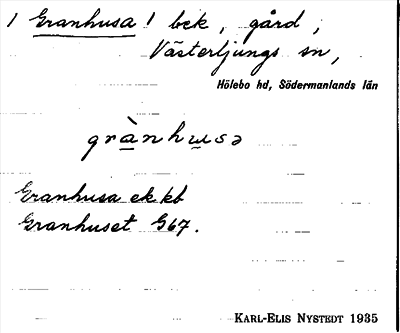 1 Granhusa 1 bck, gård,
Västerljungs sn,
Hölebo hd, Södermanlands län
grànhusə
Granhusa ek kb
Granhuset G67.
KARL-ELIS NYSTEDT 1935